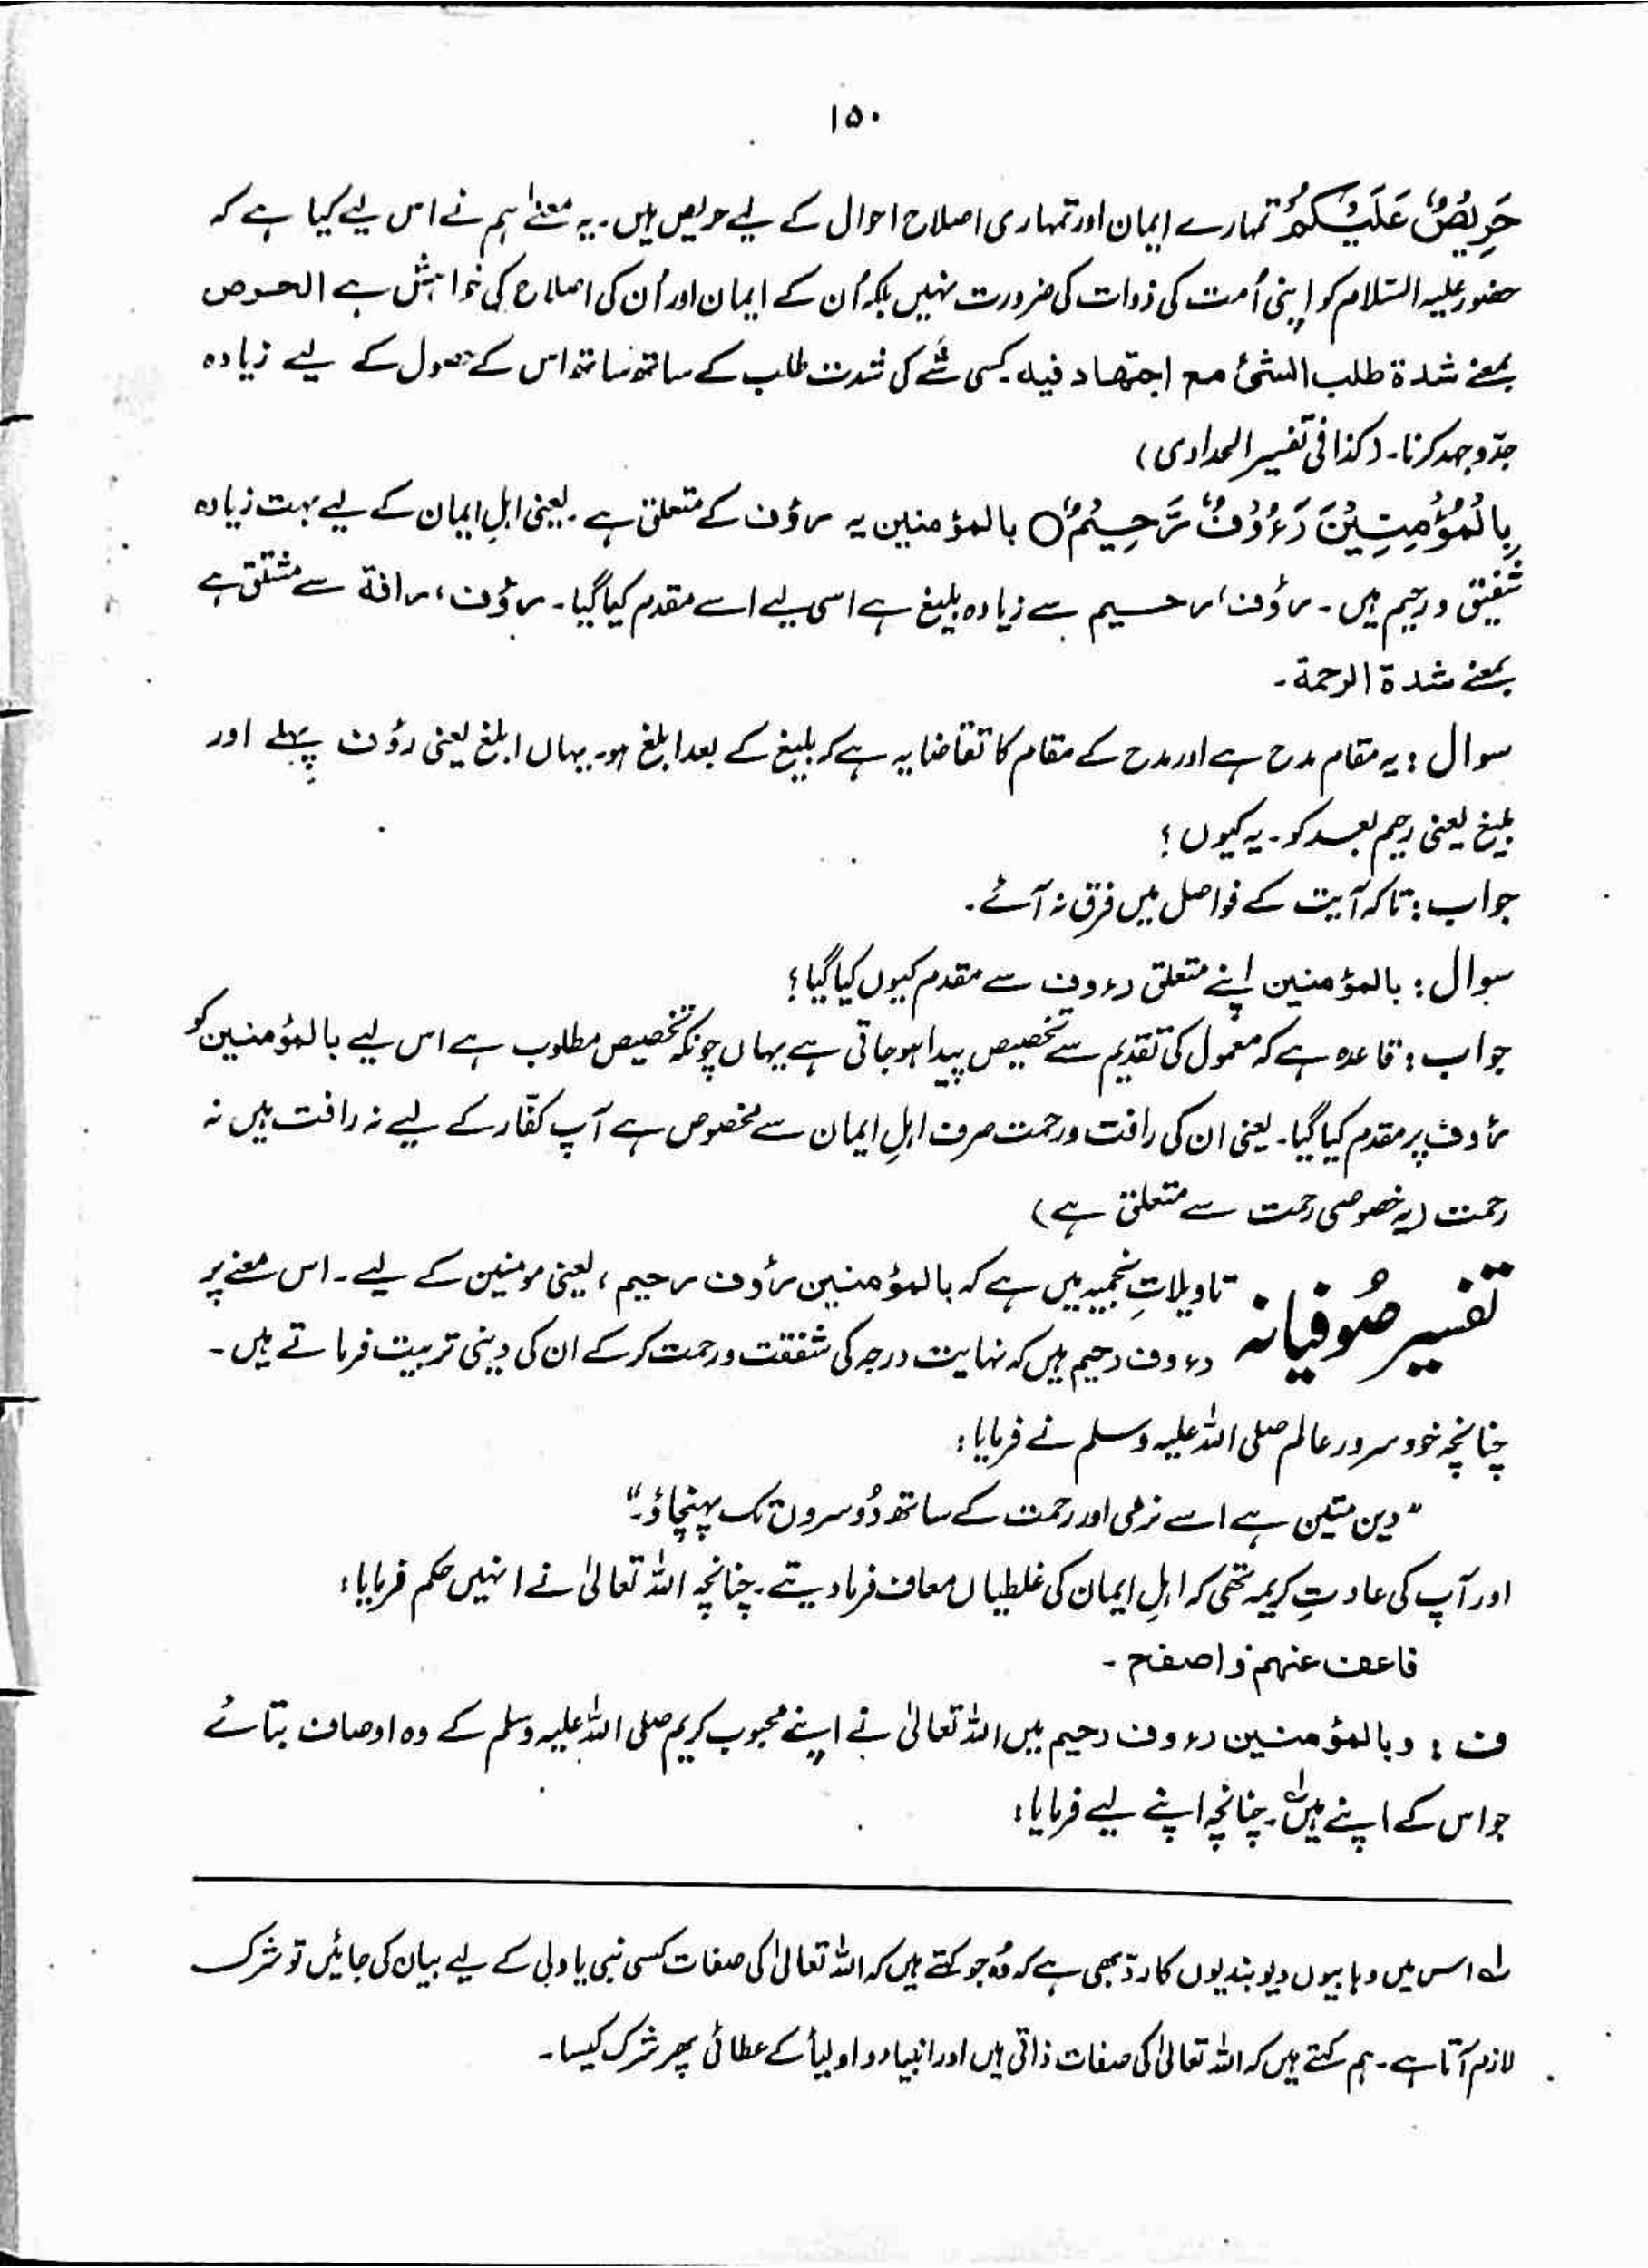 ۱۵۰
حَرِیْصٌ عَلَیْکُمْ تمہارے ایمان اور تمہاری اصلاح احوال کے لیے حریص ہیں۔ یہ معنےٰ ہم نے اس لیے کیا ہے کہ
حضور علیہ السّلام کو اپنی اُمت کی ذوات کی ضرورت نہیں بلکہ اُن کے ایمان اور اُن کی اصلاح کی خواہش ہے الحرص
بمعنے شدة طلب الشئ مع اجتهاد فیه۔ کسی شے کی شدت طلب کے ساتھ ساتھ اس کے حصول کے لیے زیادہ
جدّوجہد کرنا۔ (کذا فی تفسیر الحدادی)
بِالْمُؤْمِنِیْنَ رَءُوْفٌ رَّحِیْمٌ ○ بالمؤمنین یہ رؤف کے متعلق ہے۔ یعنی اہلِ ایمان کے لیے بہت زیادہ
شفیق و رحیم ہیں۔ رؤف، رحیم سے زیادہ بلیغ ہے اسی لیے اسے مقدم کیا گیا۔ رؤف، رافة سے مشتق ہے
بمعنے شدة الرحمة۔
سوال : یہ مقام مدح ہے اور مدح کے مقام کا تقاضا یہ ہے کہ بلیغ کے بعد ابلغ ہو۔ یہاں ابلغ یعنی رؤف پہلے اور
بلیغ یعنی رحیم بعد کو۔ یہ کیوں؟
جواب : تاکہ آیت کے فواصل میں فرق نہ آئے۔
سوال : بالمؤمنین اپنے متعلق رءوف سے مقدم کیوں کیا گیا؟
جواب : قاعدہ ہے کہ معمول کی تقدیم سے تخصیص پیدا ہو جاتی ہے یہاں چونکہ تخصیص مطلوب ہے اس لیے بالمؤمنین کو
رأوف پر مقدم کیا گیا۔ یعنی ان کی رافت و رحمت صرف اہلِ ایمان سے مخصوص ہے آپ کفّار کے لیے نہ رافت ہیں نہ
رحمت (یہ خصوصی رحمت سے متعلق ہے)
تفسیر صُوفیانہ تاویلاتِ نجمیہ میں ہے کہ بالمؤمنین رأوف رحیم، یعنی مومنین کے لیے۔ اس معنے پر
رءوف رحیم ہیں کہ نہایت درجہ کی شفقت و رحمت کر کے ان کی دینی تربیت فرماتے ہیں۔
چنانچہ خود سرور عالم صلی اللہ علیہ وسلم نے فرمایا :
"دین متین ہے اسے نرمی اور رحمت کے ساتھ دُوسروں تک پہنچاؤ۔"
اور آپ کی عادتِ کریمہ تھی کہ اہلِ ایمان کی غلطیاں معاف فرما دیتے۔ چنانچہ اللہ تعالیٰ نے انہیں حکم فرمایا :
فاعف عنهم و اصفح۔
ف : و بالمؤمنین رءوف رحیم میں اللہ تعالیٰ نے اپنے محبوب کریم صلی اللہ علیہ وسلم کے وہ اوصاف بتائے
جو اس کے اپنے ہیں لہ۔ چنانچہ اپنے لیے فرمایا :
لہ اس میں وہابیوں دیوبندیوں کا ردّ بھی ہے کہ وُہ جو کہتے ہیں کہ اللہ تعالیٰ کی صفات کسی نبی یا ولی کے لیے بیان کی جائیں تو شرک
لازم آتا ہے۔ ہم کہتے ہیں کہ اللہ تعالیٰ کی صفات ذاتی ہیں اور انبیاء و اولیأ کے عطائی پھر شرک کیسا۔